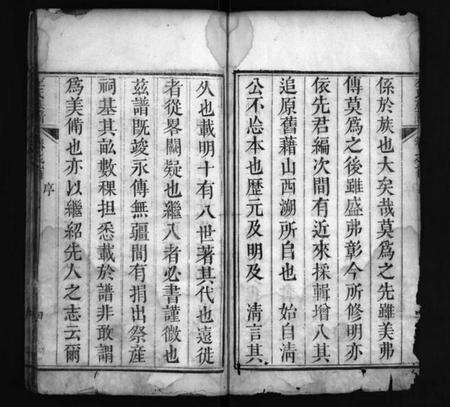 係於族也大矣哉莫爲之先雖美弗
傳莫爲之後雖盛弗彰今所修明亦
依先君編次間有近來採輯增入其
追原舊籍山西溯所自也 始自淸
公不忘本也歷元及明及 淸言其
久也載明十有八世著其代也遠徙
者從畧闕疑也繼入者必書謹微也
茲譜旣竣永傳無疆間有捐出祭產
祠基其畝數稞担悉載於譜非敢謂
爲美備也亦以繼紹先人之志云爾
序